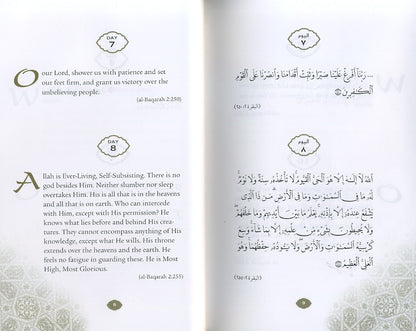 DAY
7
O our Lord, shower us with patience and set
our feet firm, and grant us victory over the
unbelieving people.
(al-Baqarah 2:250)
DAY
8
Allah is Ever-Living, Self-Subsisting. There is no
god besides Him. Neither slumber nor sleep
overtakes Him. His is all that is in the heavens
and all that is on earth. Who can intercede
with Him, except with His permission? He
knows what lies before and behind His creatures.
They cannot encompass anything of His
knowledge, except what He wills. His throne
extends over the heavens and the earth. He
feels no fatigue in guarding these. He is
Most High, Most Glorious.
(al-Baqarah 2:255)
8
اليوم
٧
... رَبَّنَا أَفْرِغْ عَلَيْنَا صَبْرًا وَثَبِّتْ أَقْدَامَنَا وَانصُرْنَا عَلَى الْقَوْمِ
الْكَافِرِينَ
اليوم
٨
اللَّهُ لَا إِلَٰهَ إِلَّا هُوَ الْحَيُّ الْقَيُّومُ لَا تَأْخُذُهُ سِنَةٌ وَلَا نَوْمٌ
لَّهُ مَا فِي السَّمَاوَاتِ وَمَا فِي الْأَرْضِ مَن ذَا الَّذِي
يَشْفَعُ عِندَهُ إِلَّا بِإِذْنِهِ يَعْلَمُ مَا بَيْنَ أَيْدِيهِمْ وَمَا خَلْفَهُمْ
وَلَا يُحِيطُونَ بِشَيْءٍ مِّنْ عِلْمِهِ إِلَّا بِمَا شَاءَ وَسِعَ
كُرْسِيُّهُ السَّمَاوَاتِ وَالْأَرْضَ وَلَا يَئُودُهُ حِفْظُهُمَا وَهُوَ
الْعَلِيُّ الْعَظِيمُ
9